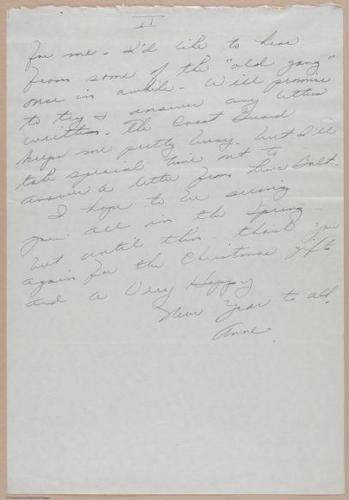 II
for me. I'd like to hear
from some of the "old gang"
once in awhile. Will promise
to try & answer any letters
written. The Coast Guard
keeps me pretty busy, but I'll
take special time out to
answer a letter from
I hope to be seeing
you all in the Spring
but until then thank you
again for the Christmas gift
and a Very Happy
New Year to all.
Anne